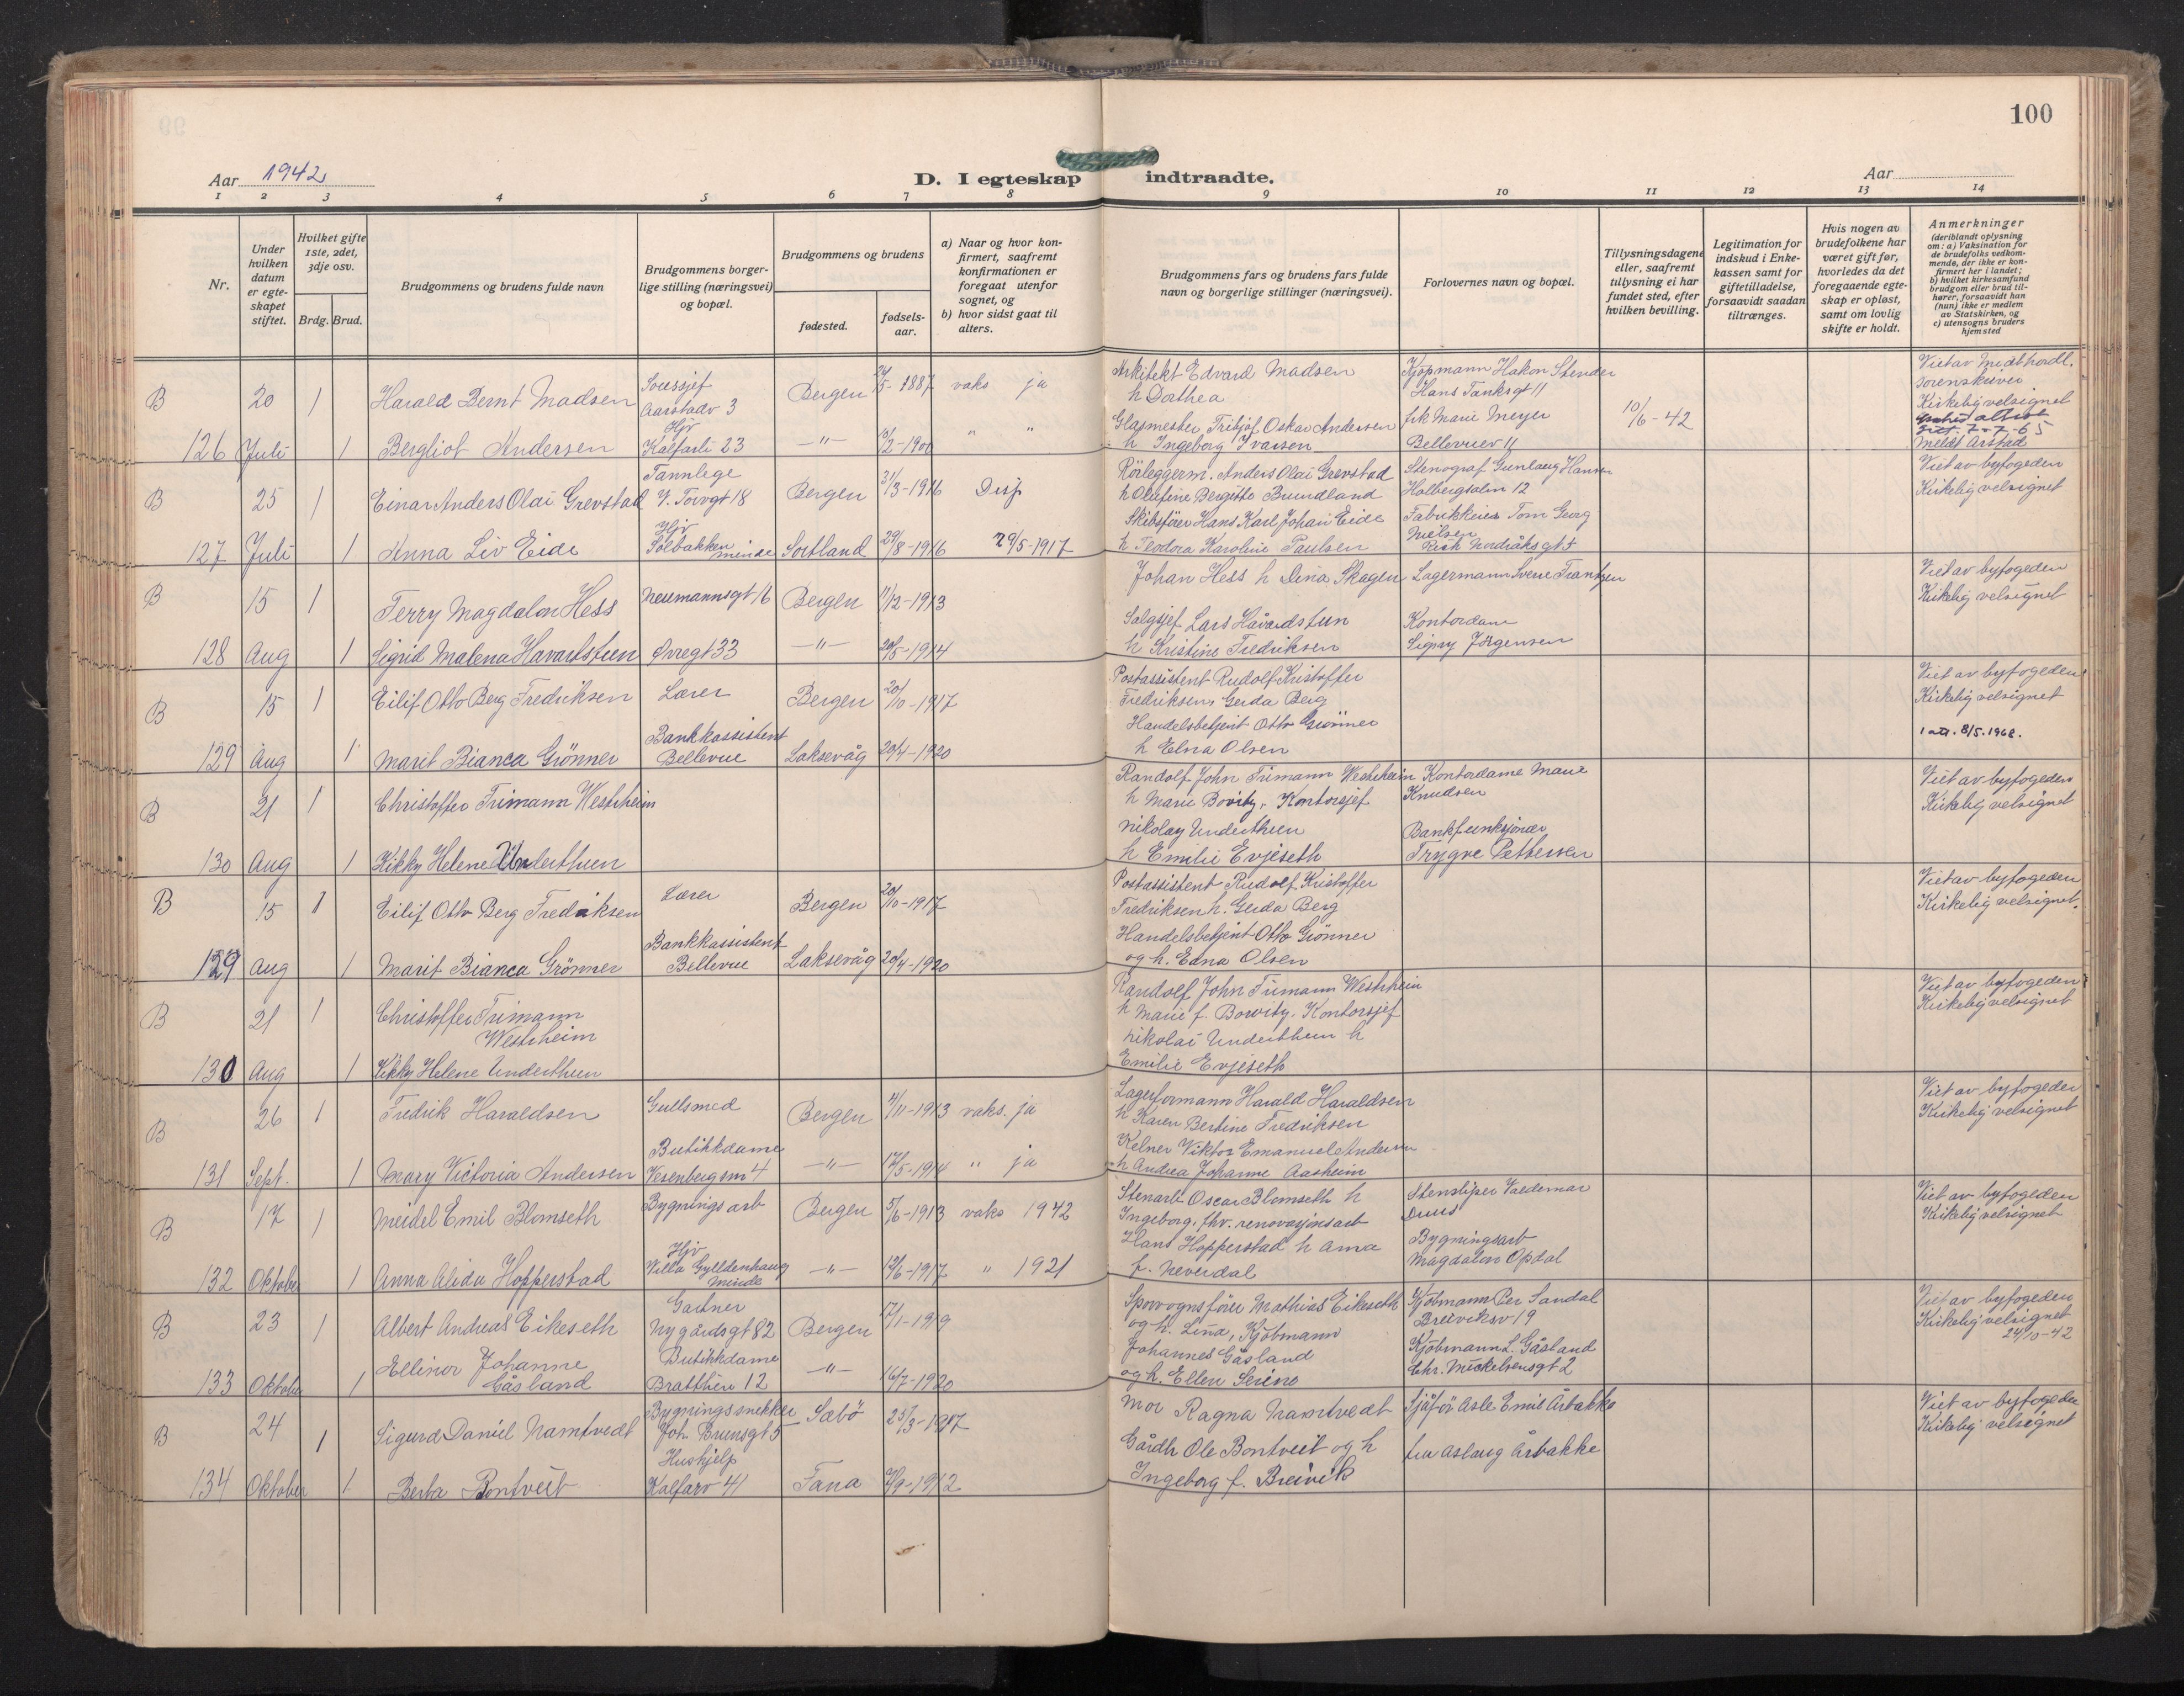 100
Aar 1942
D. I egteskap indtraadte.
Aar
1 2 3 4 5 6 7 8 9 10 11 12 13 14
Nr.
Under hvilken datum er egteskapet stiftet.
Hvilket gifte 1ste, 2det, 3dje osv.
Brdg. Brud.
Brudgommens og brudens fulde navn
Brudgommens borgerlige stilling (næringsvei) og bopæl.
Brudgommens og brudens
fødested.
fødselsaar.
a) Naar og hvor konfirmert, saafremt konfirmationen er foregaat utenfor sognet, og
b) hvor sidst gaat til alters.
Brudgommens fars og brudens fars fulde navn og borgerlige stillinger (næringsvei).
Forlovernes navn og bopæl.
Tillysningsdagene eller, saafremt tillysning ei har fundet sted, efter hvilken bevilling.
Legitimation for indskud i Enkekassen samt for giftetilladelse, forsaavidt saadan tiltrænges.
Hvis nogen av brudefolkene har været gift før, hvorledes da det foregaaende egteskap er opløst, samt om lovlig skifte er holdt.
Anmerkninger
(deriblandt oplysning om: a) Vaksination for de brudefolks vedkommende, der ikke er konfirmert her i landet; b) hvilket kirkesamfund brudgom eller brud tilhører, forsaavidt han (hun) ikke er medlem av Statskirken, og c) utensogns bruders hjemsted
B 20 1 Harald Bernt Madsen
Aarstadv 3
Bergen 24/5-1887 vaks ja
Arkitekt Edvard Madsen
h Dorthea
Kjøpmann Hakon Stender
Hans Tanksgt 11
10/6-42
Viet av Midthordl.
sorenskriver
Kirkelig velsignet
7-7-65
meldt Årstad
126 Juli 1 Bergliot Andersen
Hjv
Kalfarli 23
-"- 13/2-1900 " "
Glasmester Fritjof Oskar Andersen
h Ingeborg Ivarsen
frk Marie Meyer
Bellevuev 11
B 25 1 Einar Anders Olai Grevstad
Tannlege
V. Torvgt 18
Bergen 31/3-1916 Disp
Rörleggerm. Anders Olai Grevstad
h Olufine Bergitte Brundland
Stenograf Gunlaug Hannn
Holbergsalm 12
Viet av byfogeden
Kirkelig velsignet
127 Juli 1 Anna Liv Eide
Hjv
Solbakken
minde
Sortland 29/8-1916 29/5-1917
Skibsförer Hans Karl Johan Eide
h Teodora Karoline Paulsen
Fabrikkeier Tom Georg
Nielsen
Rich Nordråksgt 5
B 15 1 Terry Magdalon Hess
Neumannsgt 16
Bergen 11/12-1913
Johan Hess h Dina Skagen
Lagermann Sverre Frantzen
Viet av byfogeden
Kirkelig velsignet
128 Aug 1 Sigrid Malena Havardstun
Øvregt 33
-"- 20/5-1914
Salgsjef Lars Håvardstun
h Kristine Fredriksen
Kontordame
Signy Jörgensen
B 15 1 Eilif Otto Berg Fredriksen
Lærer
Bergen 20/10-1917
Postassistent Rudolf Kristoffer
Fredriksen, Gerda Berg
Viet av byfogeden
Kirkelig velsignet
129 Aug 1 Marit Bianca Grönner
Bankkassistent
Bellevue
Laksevåg 20/4-1920
Handelsbetjent Otto Grönner
h Elna Olsen
1 att. 8/5.1968.
B 21 1 Christoffer Trimann Westrheim
Randolf John Trimann Westrheim
h Marie Bowitz, Kontorsjef
Kontordame Marie
Knudsen
Viet av byfogeden
Kirkelig velsignet
130 Aug 1 Kikky Helene Underthun
Nikolay Underthun
h Emilie Evjeseth
Bankfunksjonær
Trygve Pettersen
B 15 1 Eilif Otto Berg Fredriksen
Lærer
Bergen 20/10-1917
Postassistent Rudolf Kristoffer
Fredriksen h. Gerda Berg
Viet av byfogeden
Kirkelig velsignet.
129 Aug 1 Marit Bianca Grönner
Bankkassistent
Bellevue
Laksevåg 20/4-1920
Handelsbetjent Otto Grönner
og h. Edna Olsen
B 21 1 Christoffer Trimann
Westrheim
Randolf John Trimann Westrheim
h Marie f. Bowitz. Kontorsjef
Viet av byfogeden
Kirkelig velsignet
130 Aug 1 Kikky Helene Underthun
Nikolai Underthun h
Emilie Evjeseth
B 26 1 Fredrik Haraldsen
Gullsmed
Bergen 4/11-1913 vaks. ja
Lagerformann Harald Haraldsen
h Karen Bertine Fredriksen
Viet av byfogeden
Kirkelig velsignet
131 Sept. 1 Mary Victoria Andersen
Butikkdame
Vesenbergsm 4
-"- 17/5-1914 " ja
Kelner Viktor Emanuel Andersen
h Andrea Johanne Aasheim
B 17 1 Meidel Emil Blomseth
Bygningsarb
Bergen 5/6-1913 vaks 1942
Stenarb Oscar Blomseth h
Ingeborg, fhv. renovasjonsarb
Stensliper Valdemar
Duus
Viet av byfogeden
Kirkelig velsignet
132 Oktober 1 Anna Alida Hopperstad
Hjv
Villa Gylldenhaug
Minde
-"- 12/6-1917 " 1921
Hans Hopperstad h Anna
f. Neverdal
Bygningsarb
Magdalon Opdal
B 23 1 Albert Andreas Eikeseth
Gartner
Nygårdsgt 82
Bergen 17/1-1919
Sporvognsförer Mathias Eikeseth
og h. Lina, Kjöbmann
Kjöbmann Per Sandal
Breiviksv 19
Viet av byfogeden
Kirkelig velsignet
24/10-42
133 Oktober 1 Ellinor Johanne
Gåsland
Butikkdame
Bratthien 12
-"- 16/7-1920
Johannes Gåsland
og h. Ellen Serine
Kjöbmann L. Gåsland
Chr. Mickelsensgt 2
B 24 1 Sigurd Daniel Namtvedt
Bygningssnekker
Joh. Brunsgt 5
Sæbö 25/3-1917
Mor Ragna Namtvedt
Sjåför Asle Emil Årbakke
Viet av byfogeden
Kirkelig velsignet
134 Oktober 1 Berta Bontveit
Hushjelp
Kalfarv 41
Fana
Gårdb Ole Bontveit og h
Ingeborg f. Breivik
fru Aslaug Årbakke